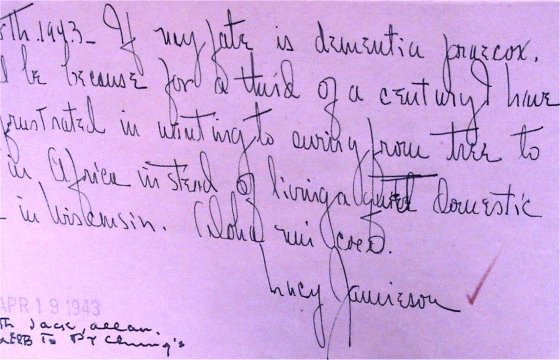 5th.1943- If my fate is dementia praecox,
l be because for a third of a century I have
frustrated in wanting to swing from tree to
in Africa instead of living a quiet domestic
in Wisconsin. Aloha nui
Lucy Jamieson
APR 19 1943
th Jack, allan.
To PY Chung's